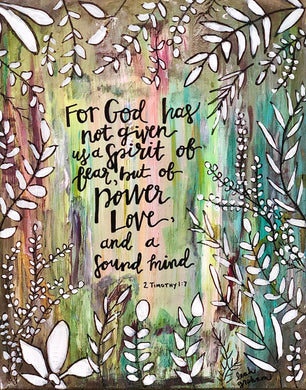 For God has
not given
us a Spirit of
fear, but of
power
Love,
and a
Sound mind
2 Timothy 1:7